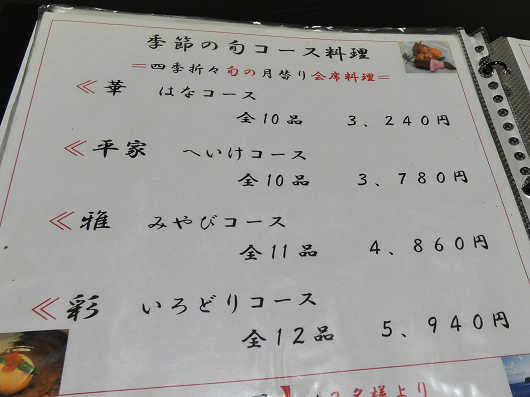 季節の旬コース料理
=四季折々旬の月替り会席料理=
≪ 華 はなコース
全10品 3、240円
≪ 平家 へいけコース
全10品 3、780円
≪ 雅 みやびコース
全11品 4、860円
≪ 彩 いろどりコース
全12品 5、940円
】 2名様より